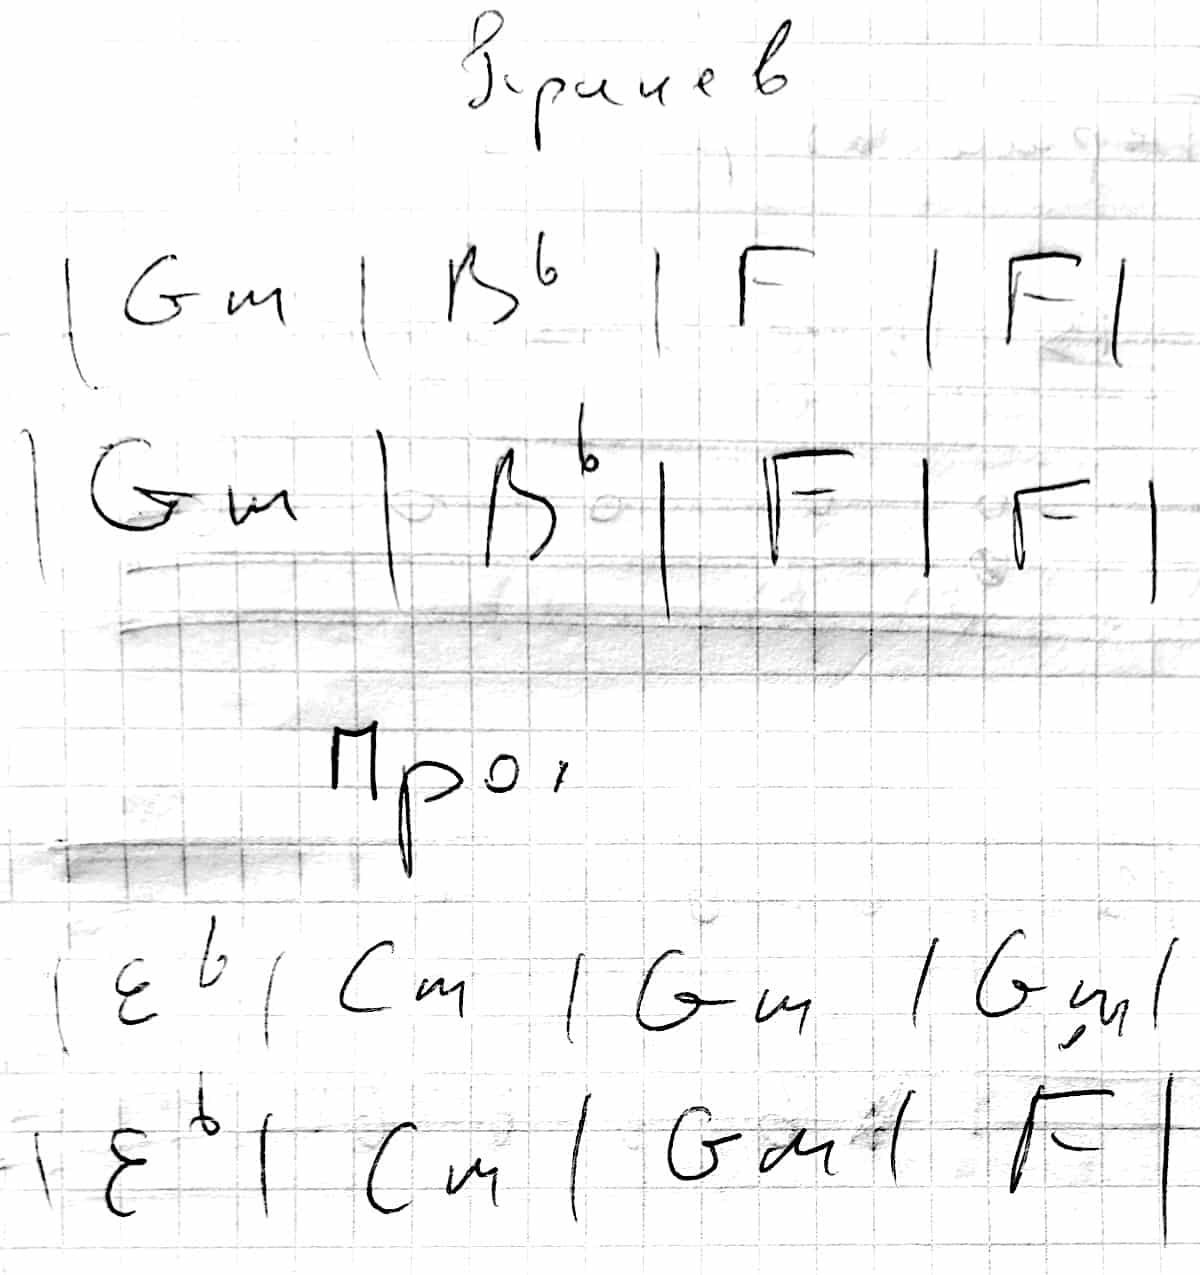 Припев
| Gm | B♭ | F | F |
| Gm | B♭ | F | F |
Про
| E♭ | Cm | Gm | Gm |
| E♭ | Cm | Gm | F |